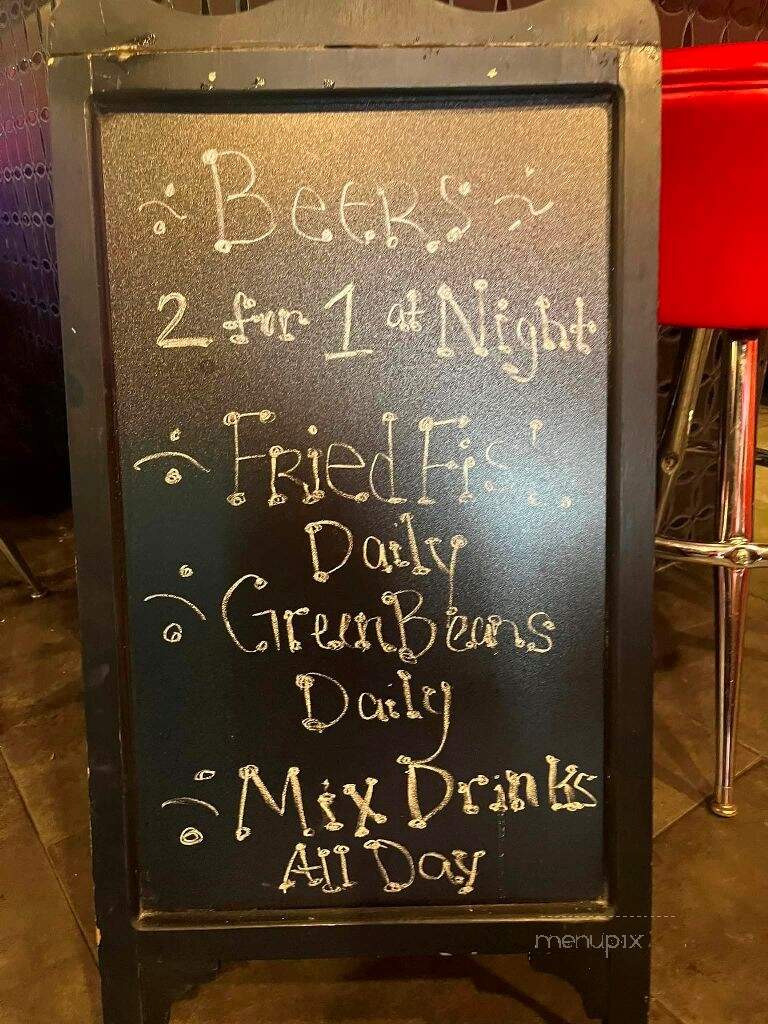 ~ Beers ~
2 for 1 at Night
Fried Fish
Daily
Green Beans
Daily
Mix Drinks
All Day
menupix